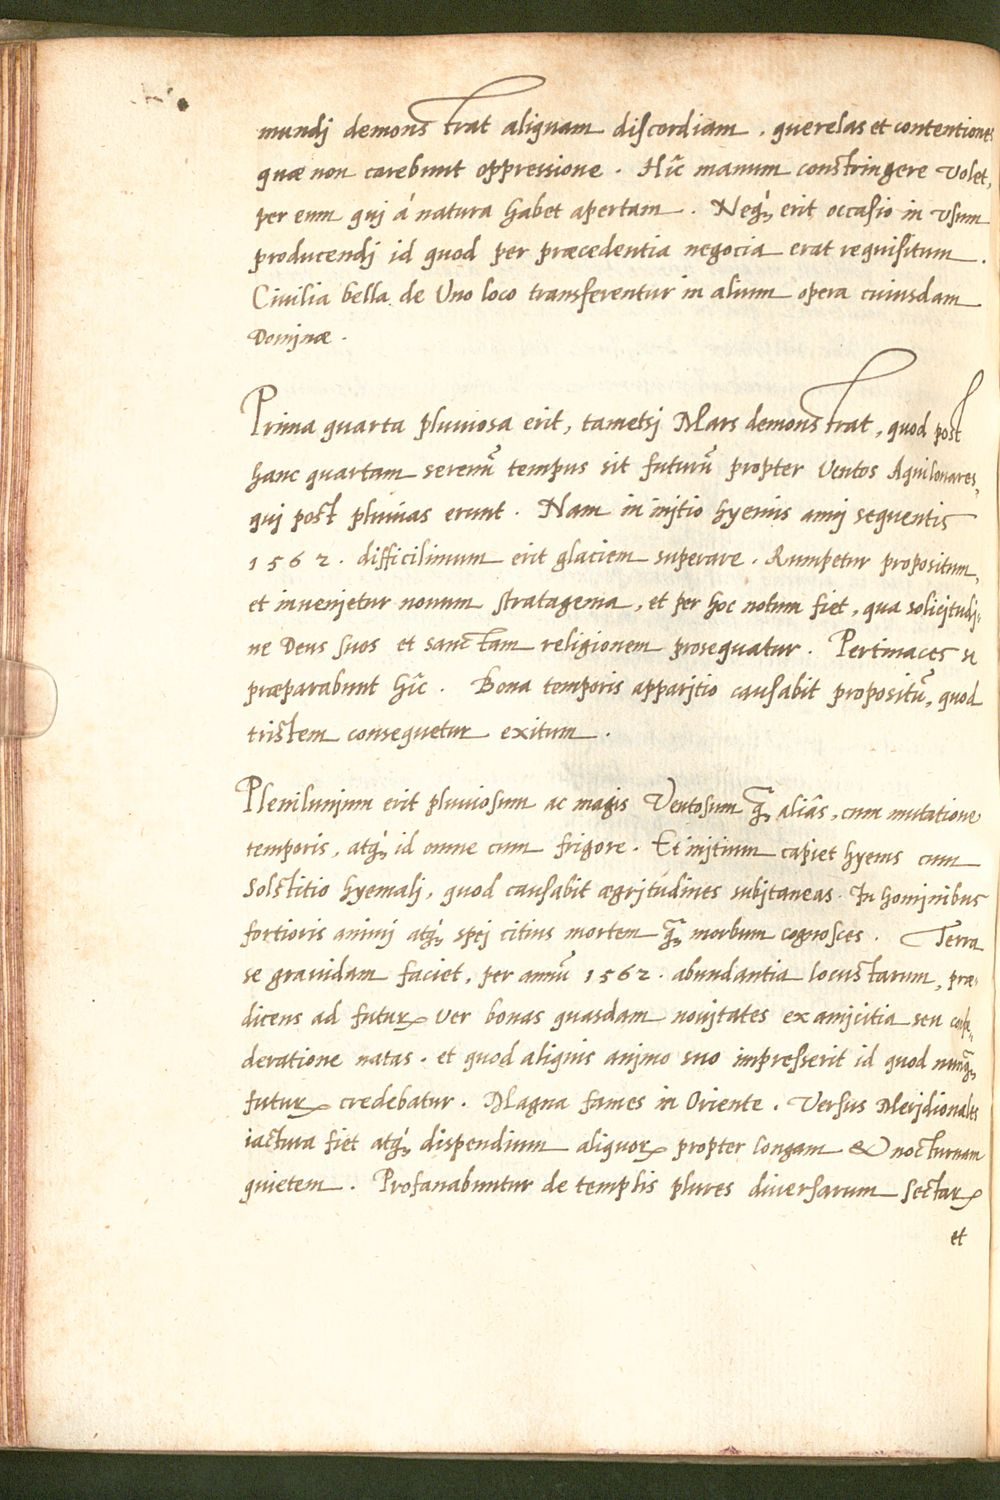 mundj demonstrat aliquam discordiam, querelas et contentiones
quæ non carebunt oppressione. Hîc manum constringere volet,
per eum quj á natura habet apertam. Neq́ꝫ erit occasio in usum
producendj id quod per præcedentia negocia erat requisitum.
Civilia bella de Uno loco transferentur in alium opera cuiusdam
Dominæ.
Prima quarta pluviosa erit, tametsj Mars demonstrat, quod post
hanc quartam serenũ tempus sit futurũ propter Ventos Aquilonares,
quj post pluvias erunt. Nam in initio hyemis annj sequentis
1562. difficilimum erit glaciem superare. Rumpetur propositum,
et invenjetur novum stratagema, et per hoc notum fiet, qua solicitudj-
ne Deus suos et sanctam religionem prosequatur. Pertinaces se
præparabunt hîc. Bona temporis apparjtio causabit propositũ, quod
tristem consequetur exitum.
Plenilunjum erit pluviosum ac magis Ventosum q̃ꝫ aliâs, cum mutatione
temporis, atq́ꝫ id omne cum frigore. Et initium capiet hyems cum
Solstitio hyemalj, quod causabit ægrjtudines subjtaneas. In homjnibus
fortioris animj atq́ꝫ spej citius mortem q̃ꝫ morbum cognosces. Terra
se gravidam faciet, per annũ 1562. abundantia locustarum, præ-
dicens ad futurꝝ ver bonas quasdam novjtates ex amjcitia seu
deratione natas. et quod aliquis anjmo suo impresserit id quod nunq̃ꝫ
futurꝝ credebatur. Magna fames in Oriente. Versus Merjdionales
iactura fiet atq́ꝫ dispendium aliquorꝝ propter longam & nocturnam
quietem. Profanabuntur de templis plures diversarum sectarꝝ
et